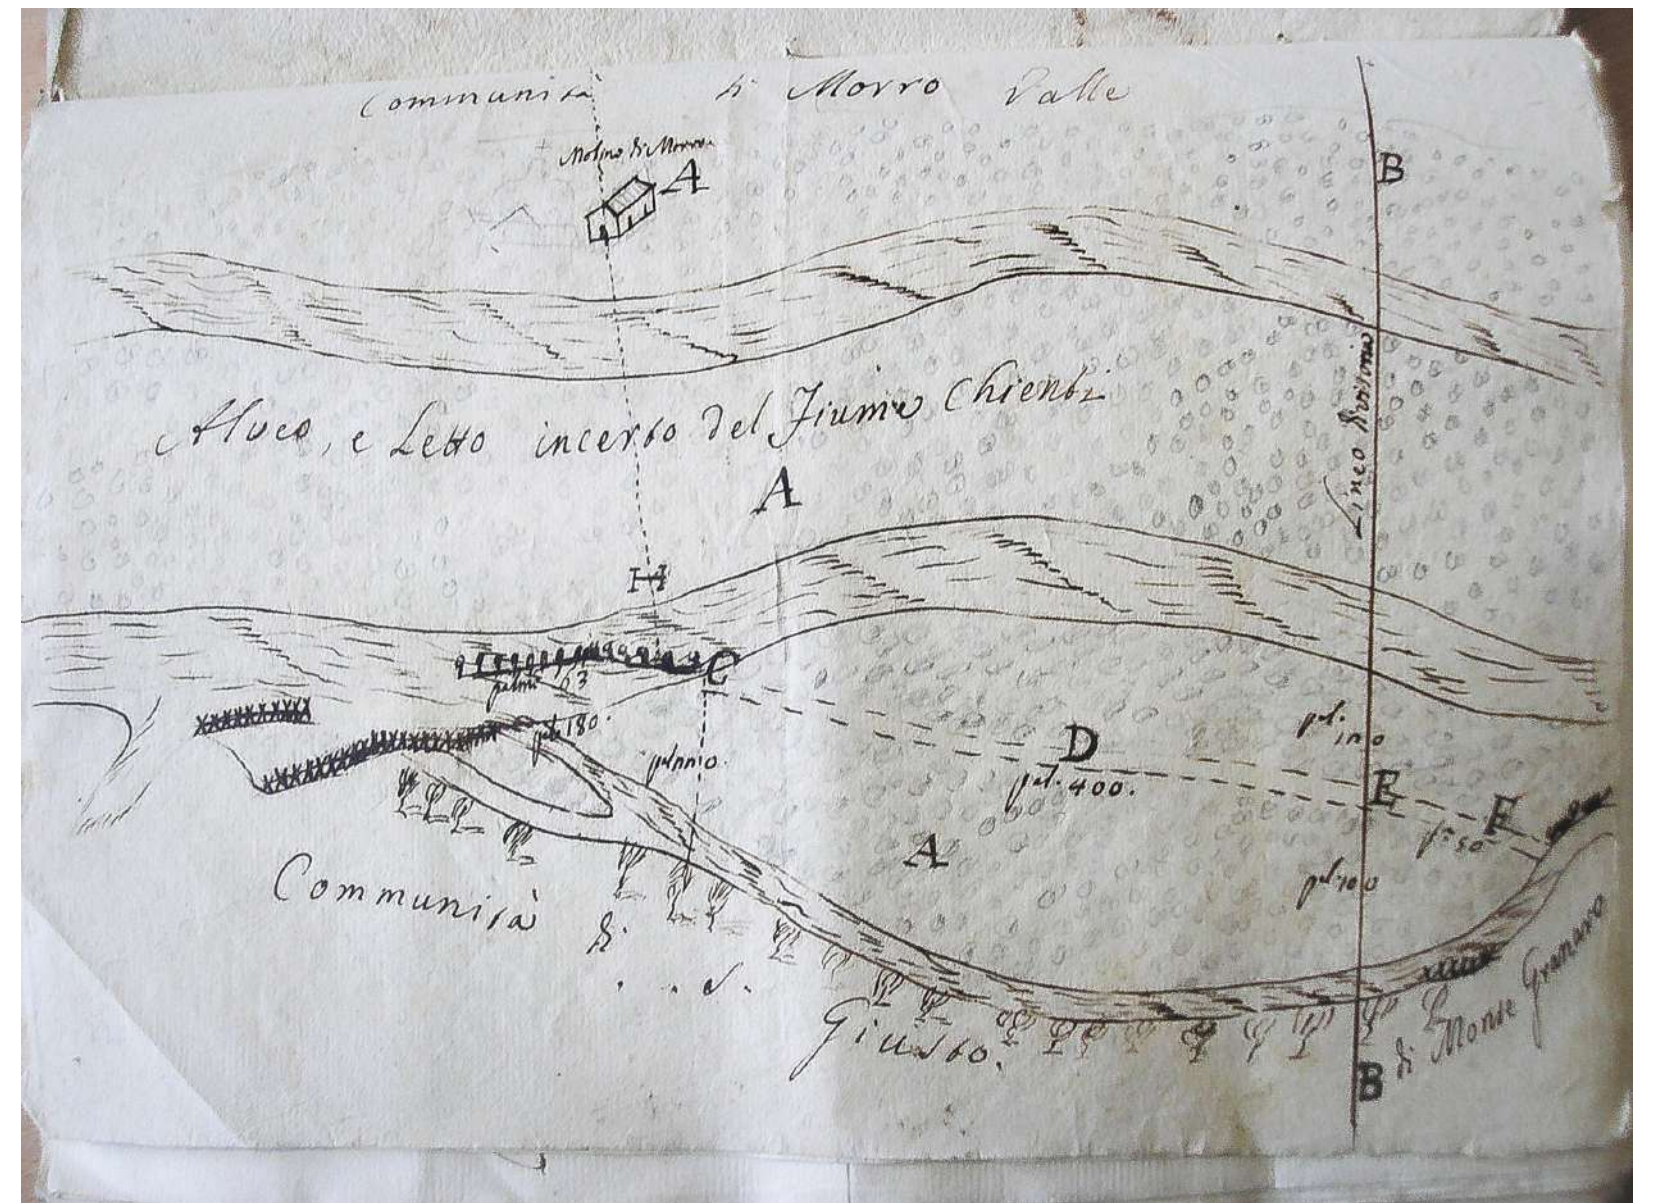 Communità di Morro Valle
Molino di Morro
A
B
Alveo, e Letto incerto del Fiume Chienti
Linea Divisoria
A
H
C
palmi 63
pal. 180.
D
pal. 400.
pal.
E
F
p. 50
A
pal. 100
Communità di
. . S.
Giusto.
di Monte Granaro
B